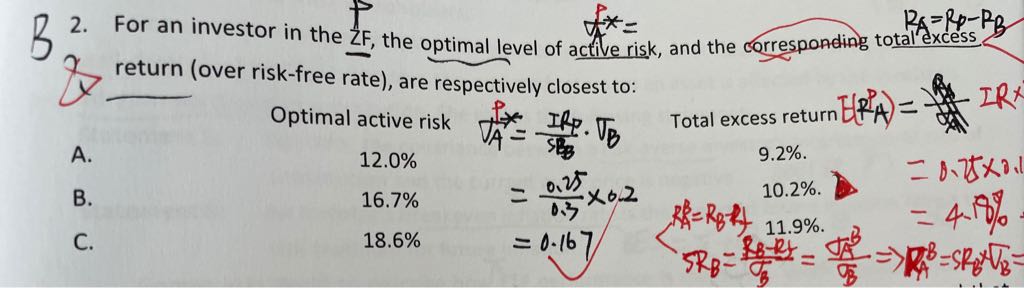 B 2. For an investor in the ZF, the optimal level of active risk, and the corresponding total excess
return (over risk-free rate), are respectively closest to:
Optimal active risk Total excess return
A. 12.0% 9.2%.
B. 16.7% 10.2%.
C. 18.6% 11.9%.
P
R_A = R_P - R_B
= IR_P / SR_B · σ_B
= 0.25 / 0.3 × 0.2
= 0.167
= 0.25 × 0.1
= 4.18%
R_A^B = R_B - R_f